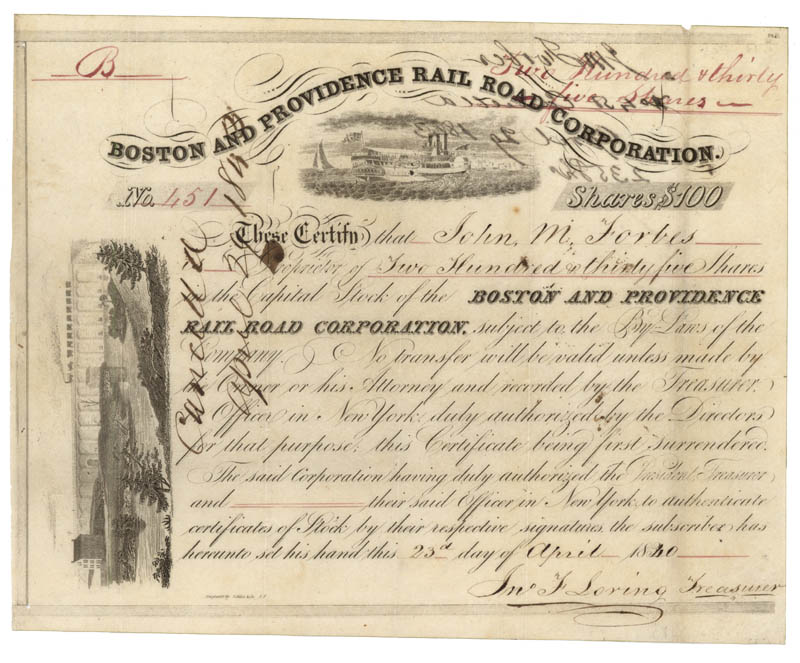 B
Two Hundred & thirty
five Shares
BOSTON AND PROVIDENCE RAIL ROAD CORPORATION.
No. 451
Shares, $100
These Certify that John, M, Forbes
Proprietor of Two Hundred & thirty five Shares
in the Capital Stock of the BOSTON AND PROVIDENCE
RAIL ROAD CORPORATION, subject to the By-Laws of the
Company. No transfer will be valid unless made by
Owner or his Attorney and recorded by the Treasurer.
Officer in New York, duly authorized by the Directors
for that purpose; this Certificate being first surrendered.
The said Corporation having duly authorized the President, Treasurer
and their said Officer in New York, to authenticate
certificates of Stock by their respective signatures, the subscriber has
hereunto set his hand this 23d day of April 1840
Jno F Loring Treasurer
Cancelled
April